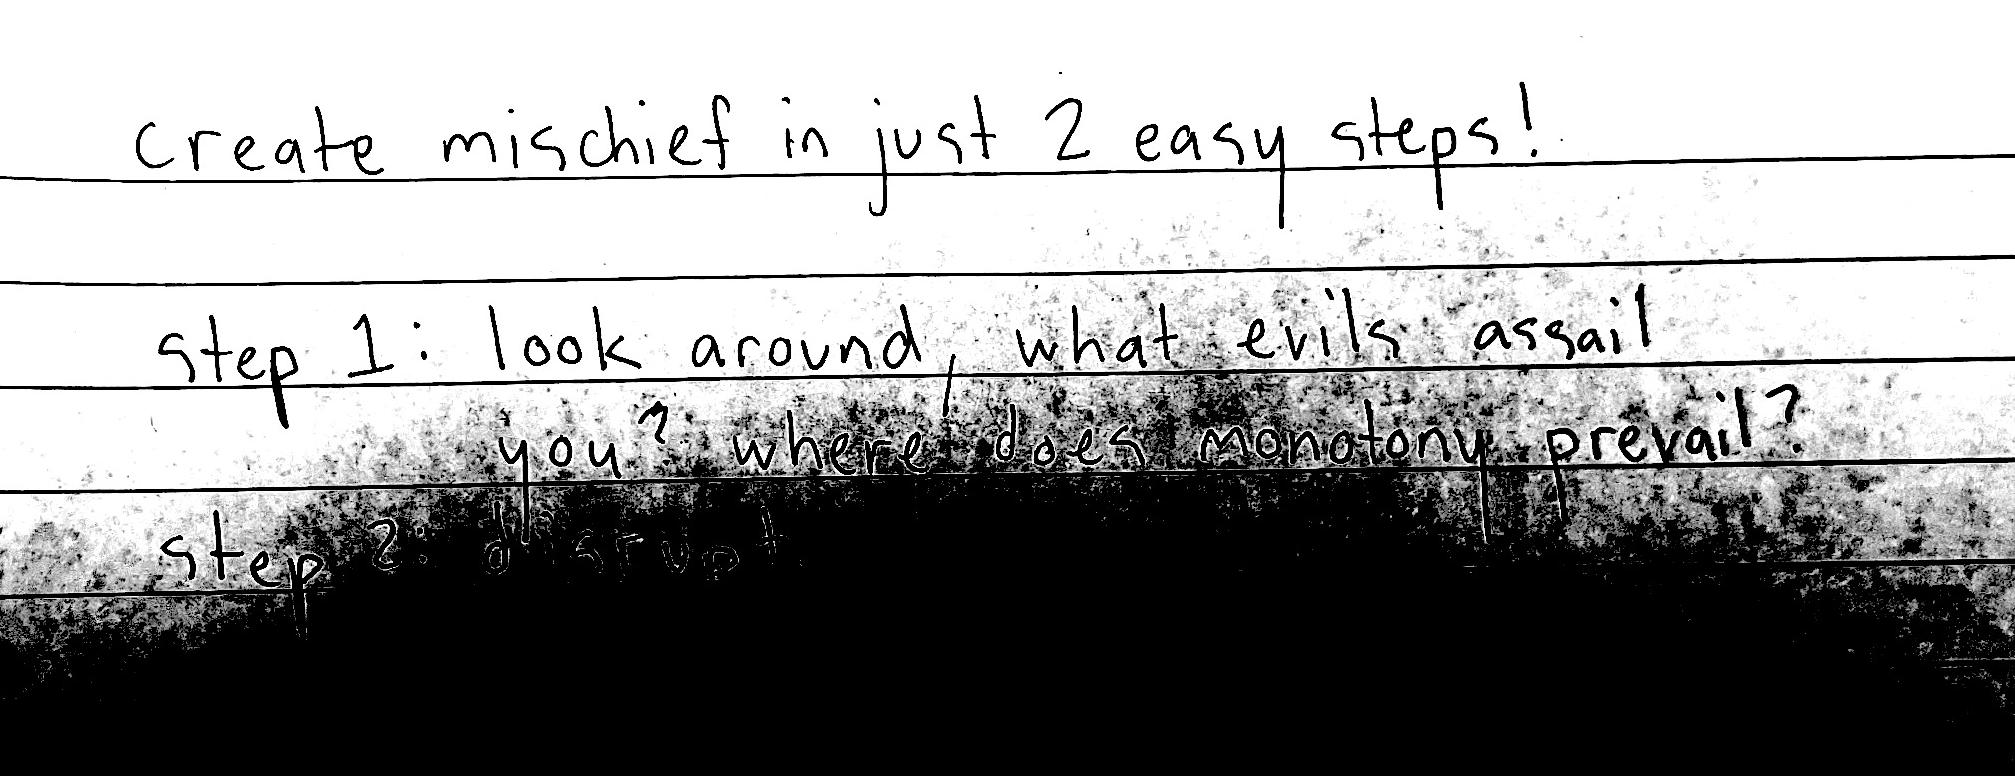 create mischief in just 2 easy steps!
step 1: look around, what evils assail
you? where does monotony prevail?
step 2: disrupt